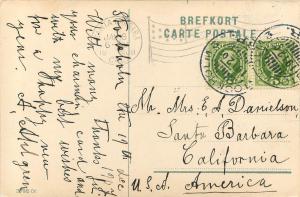 BREFKORT
CARTE POSTALE
Stockholm the 19th Dec
With many Thanks for
your charming card and
with my best wishes
for a Happy new
year. A.
Mr. Mrs. E. A. Danielson
Santa Barbara
California
U.S.A. America